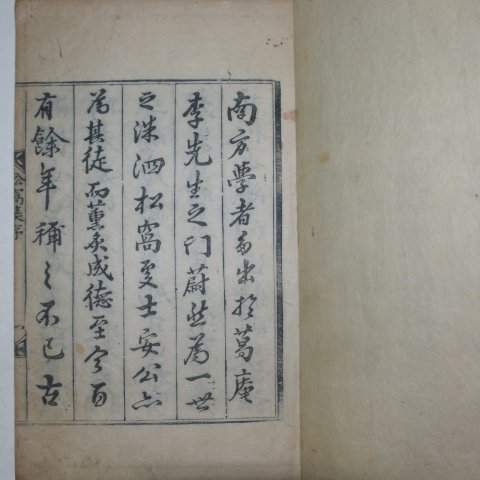 南方學者多出於葛庵
李先生之门蔚然為一世
之洙泗松窩處士安公亦
為其徒而薰炙成德至今百
有餘年稱之不已古
松窩集序